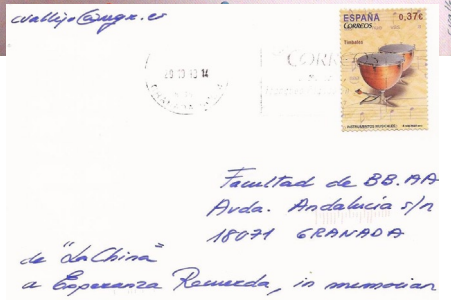 cvallejo@ugr.es
ESPAÑA 0,37€
CORREOS
Timbales
CORREOS
INSTRUMENTOS MUSICALES
Facultad de BB.AA
Avda. Andalucía s/n
18071 GRANADA
de "La China"
a Esperanza Recuerda, in memorian